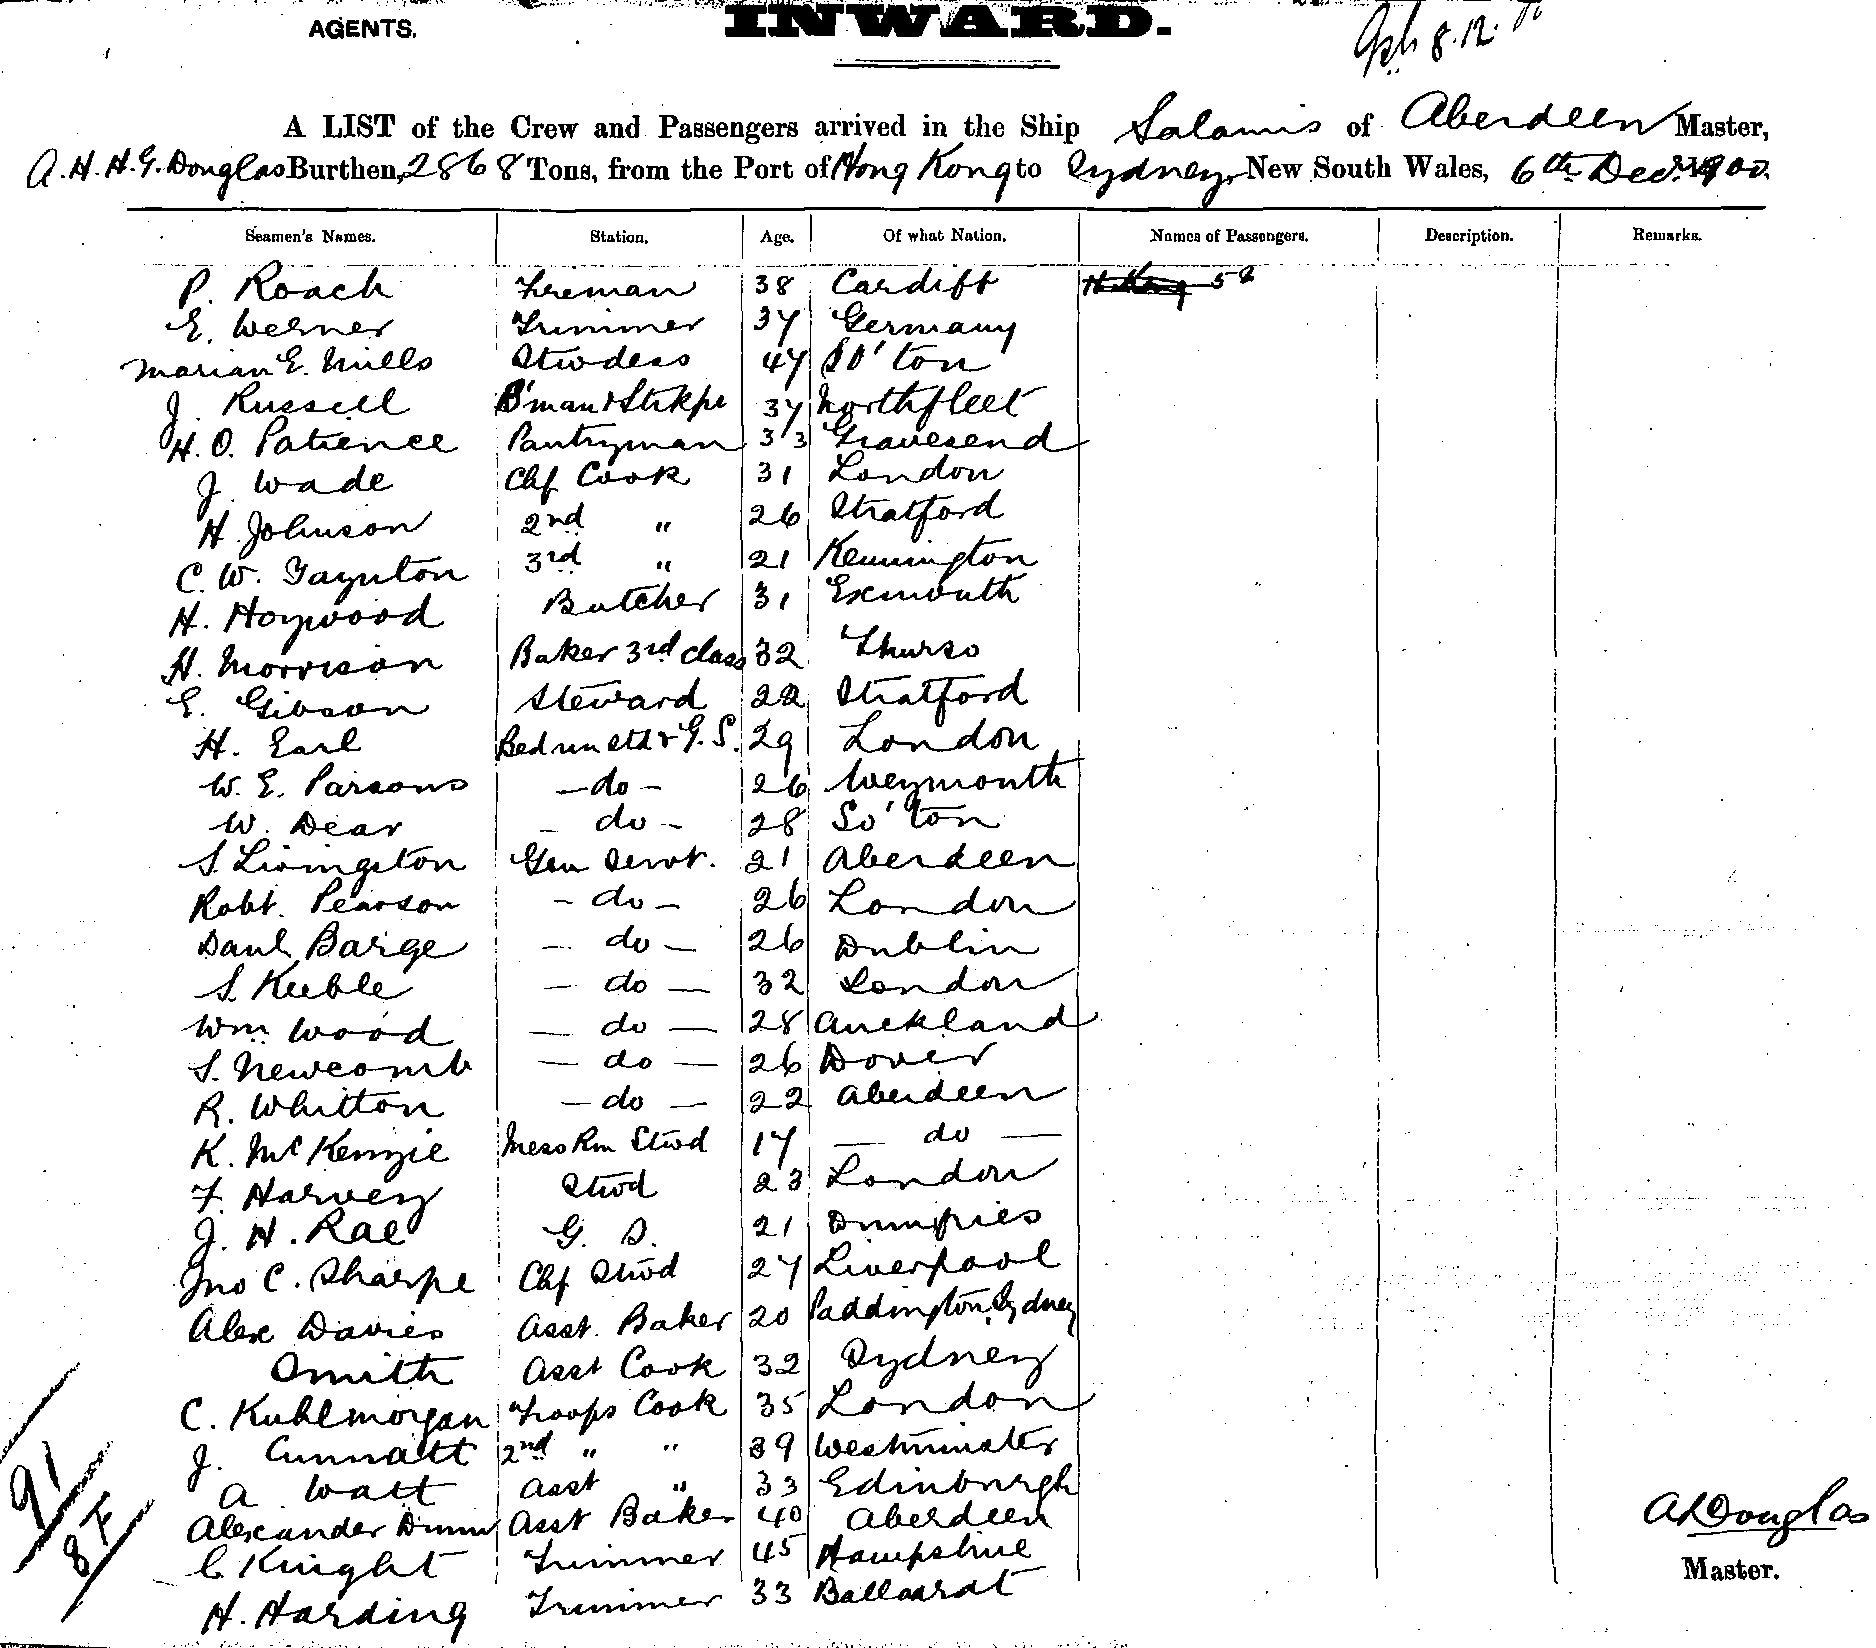 AGENTS.
INWARD.
8.12.
A LIST of the Crew and Passengers arrived in the Ship Salamis of Aberdeen Master,
A. H. H. G. Douglas Burthen, 2868 Tons, from the Port of Hong Kong to Sydney, New South Wales, 6th Dec. 1900.
Seamen's Names. Station. Age. Of what Nation. Names of Passengers. Description. Remarks.
P. Roach Fireman 38 Cardiff
E. Werner Trimmer 37 Germany
Marian E. Mills Stwdess 47 So'ton
J. Russell B'man & Stkpr 37 Northfleet
H. O. Patience Pantryman 33 Gravesend
J. Wade Chf Cook 31 London
H Johnson 2nd " 26 Stratford
C. W. Taynton 3rd " 21 Kennington
H. Haywood Butcher 31 Exmouth
H. Morrison Baker 3rd class 32 Thurso
E. Gibson Steward 22 Stratford
H. Earl Bedrm std & G. S. 29 London
W. E. Parsons - do - 26 Weymouth
W. Dear - do - 28 So'ton
S. Livingston Gen Servt. 21 Aberdeen
Robt. Pearson - do - 26 London
Danl Barge - do - 26 Dublin
S. Keeble - do - 32 London
Wm Wood - do - 28 Auckland
S. Newcomb - do - 26 Dover
R. Whitton - do - 22 Aberdeen
K. McKenzie Mess Rm Stwd 17 - do -
F. Harvey Stwd 23 London
J. H. Rae G. S. 21 Dumfries
Jno C. Sharpe Chf Stwd 27 Liverpool
Alex Davies Asst. Baker 20 Paddington, Sydney
Smith Asst Cook 32 Sydney
C. Kuhlmorgan Troops Cook 35 London
J. Cunnatt 2nd " " 39 Westminster
A Watt Asst " 33 Edinburgh
Alexander Dunn Asst Baker 40 Aberdeen
C Knight Trimmer 45 Hampshire
H. Harding Trimmer 33 Ballarat
91
87
A Douglas
Master.